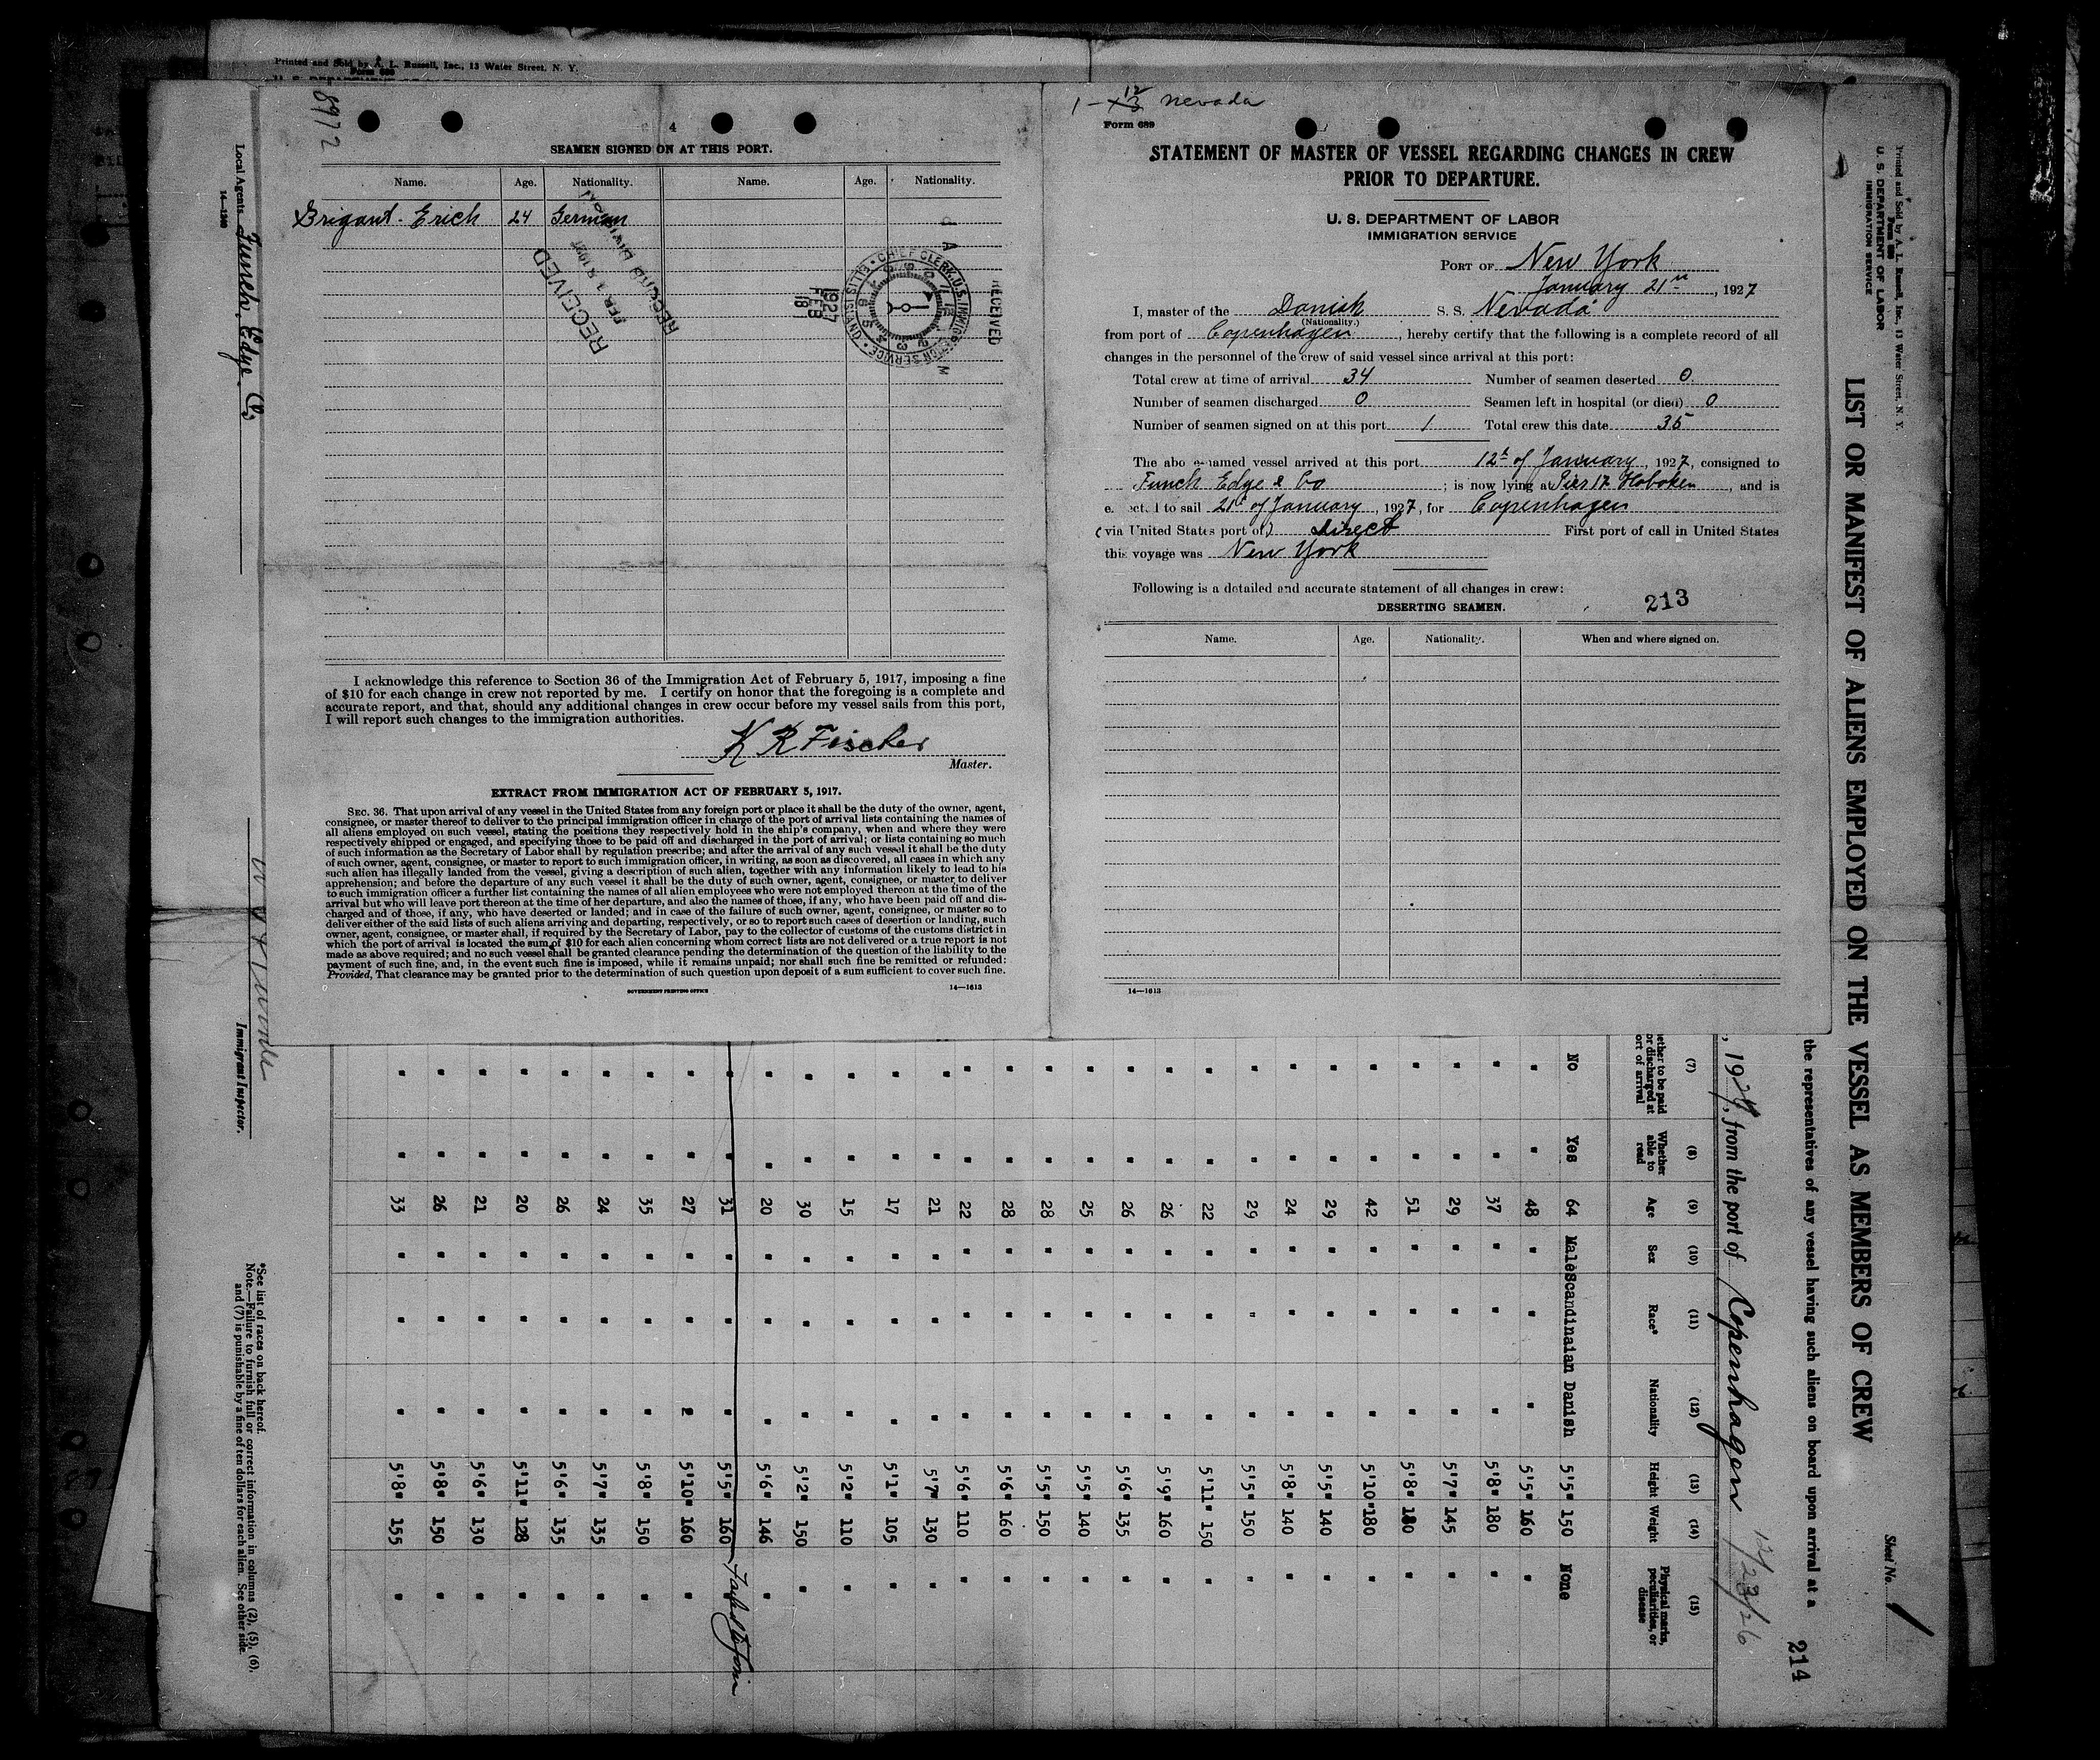 Printed and Sold by A. L. Russell, Inc., 13 Water Street, N. Y.
Form 689
8972
4
SEAMEN SIGNED ON AT THIS PORT.
Name. Age. Nationality. Name. Age. Nationality.
Brigant - Erich 24 German
RECEIVED
FEB 18 1927
RECORD DIVISION
RECEIVED
CHIEF CLERK, U.S. IMMIGRATION SERVICE · ELLIS ISLAND
1927
FEB
18
I acknowledge this reference to Section 36 of the Immigration Act of February 5, 1917, imposing a fine
of $10 for each change in crew not reported by me. I certify on honor that the foregoing is a complete and
accurate report, and that, should any additional changes in crew occur before my vessel sails from this port,
I will report such changes to the immigration authorities.
K R Fischer
Master.
EXTRACT FROM IMMIGRATION ACT OF FEBRUARY 5, 1917.
SEC. 36. That upon arrival of any vessel in the United States from any foreign port or place it shall be the duty of the owner, agent,
consignee, or master thereof to deliver to the principal immigration officer in charge of the port of arrival lists containing the names of
all aliens employed on such vessel, stating the positions they respectively hold in the ship's company, when and where they were
respectively shipped or engaged, and specifying those to be paid off and discharged in the port of arrival; or lists containing so much
of such information as the Secretary of Labor shall by regulation prescribe; and after the arrival of any such vessel it shall be the duty
of such owner, agent, consignee, or master to report to such immigration officer, in writing, as soon as discovered, all cases in which any
such alien has illegally landed from the vessel, giving a description of such alien, together with any information likely to lead to his
apprehension; and before the departure of any such vessel it shall be the duty of such owner, agent, consignee, or master to deliver
to such immigration officer a further list containing the names of all alien employees who were not employed thereon at the time of the
arrival but who will leave port thereon at the time of her departure, and also the names of those, if any, who have been paid off and dis-
charged and of those, if any, who have deserted or landed; and in case of the failure of such owner, agent, consignee, or master so to
deliver either of the said lists of such aliens arriving and departing, respectively, or so to report such cases of desertion or landing, such
owner, agent, consignee, or master shall, if required by the Secretary of Labor, pay to the collector of customs of the customs district in
which the port of arrival is located the sum of $10 for each alien concerning whom correct lists are not delivered or a true report is not
made as above required; and no such vessel shall be granted clearance pending the determination of the question of the liability to the
payment of such fine, and, in the event such fine is imposed, while it remains unpaid; nor shall such fine be remitted or refunded:
Provided, That clearance may be granted prior to the determination of such question upon deposit of a sum sufficient to cover such fine.
GOVERNMENT PRINTING OFFICE 14—1613
12
1 - Nevada
Form 689
STATEMENT OF MASTER OF VESSEL REGARDING CHANGES IN CREW
PRIOR TO DEPARTURE.
U. S. DEPARTMENT OF LABOR
IMMIGRATION SERVICE
PORT OF New York
January 21st, 1927
I, master of the Danish S. S. Nevada
(Nationality.)
from port of Copenhagen, hereby certify that the following is a complete record of all
changes in the personnel of the crew of said vessel since arrival at this port:
Total crew at time of arrival 34 Number of seamen deserted 0.
Number of seamen discharged 0 Seamen left in hospital (or died) 0
Number of seamen signed on at this port 1 Total crew this date 35
The abo e-named vessel arrived at this port 12th of January, 1927, consigned to
Funch Edge & Co; is now lying at Pier 17 Hoboken, and is
e. ect. l to sail 21st of January, 1927, for Copenhagen
(via United States port of) direct First port of call in United States
this voyage was New York
Following is a detailed and accurate statement of all changes in crew:
213
DESERTING SEAMEN.
Name. Age. Nationality. When and where signed on.
14—1613
Printed and Sold by A. L. Russell, Inc., 13 Water Street, N. Y.
Form 689
U. S. DEPARTMENT OF LABOR
IMMIGRATION SERVICE
Sheet No. 1
LIST OR MANIFEST OF ALIENS EMPLOYED ON THE VESSEL AS MEMBERS OF CREW
the representatives of any vessel having such aliens on board upon arrival at a
214
, 1927, from the port of Copenhagen 12/23/26
(7) (8) (9) (10) (11) (12) (13) (14) (15)
ether to be paid or discharged at ort of arrival Whether able to read Age Sex Race* Nationality Height Weight Physical marks, peculiarities, or disease
No Yes 64 Male Scandinaian Danish 5'5" 150 None
" " 48 " " " 5'5" 160 "
" " 37 " " " 5'8" 180 "
" " 29 " " " 5'7" 145 "
" " 51 " " " 5'8" 180 "
" " 42 " " " 5'10" 180 "
" " 29 " " " 5'5" 140 "
" " 24 " " " 5'8" 140 "
" " 29 " " " 5'5" 150 "
" " 22 " " " 5'11" 150 "
" " 26 " " " 5'9" 160 "
" " 26 " " " 5'6" 135 "
" " 25 " " " 5'5" 140 "
" " 28 " " " 5'5" 150 "
" " 28 " " " 5'6" 160 "
" " 22 " " " 5'6" 110 "
" " 21 " " " 5'7" 130 "
" " 17 " " " 5'1" 105 "
" " 15 " " " 5'2" 110 "
" " 30 " " " 5'2" 150 "
" " 20 " " " 5'6" 146 "
" " 31 " " " 5'5" 160 Failed to Join
" " 27 " " " 5'10" 160 "
" " 35 " " " 5'8" 150 "
" " 24 " " " 5'7" 135 "
" " 26 " " " 5'6" 135 "
" " 20 " " " 5'11" 128 "
" " 21 " " " 5'6" 130 "
" " 26 " " " 5'8" 150 "
" " 33 " " " 5'8" 155 "
Local Agents Funch, Edge & Co
14—1390
Immigrant Inspector.
*See list of races on back hereof.
Note.—Failure to furnish full or correct information in columns (2), (5), (6),
and (7) is punishable by a fine of ten dollars for each alien. See other side.